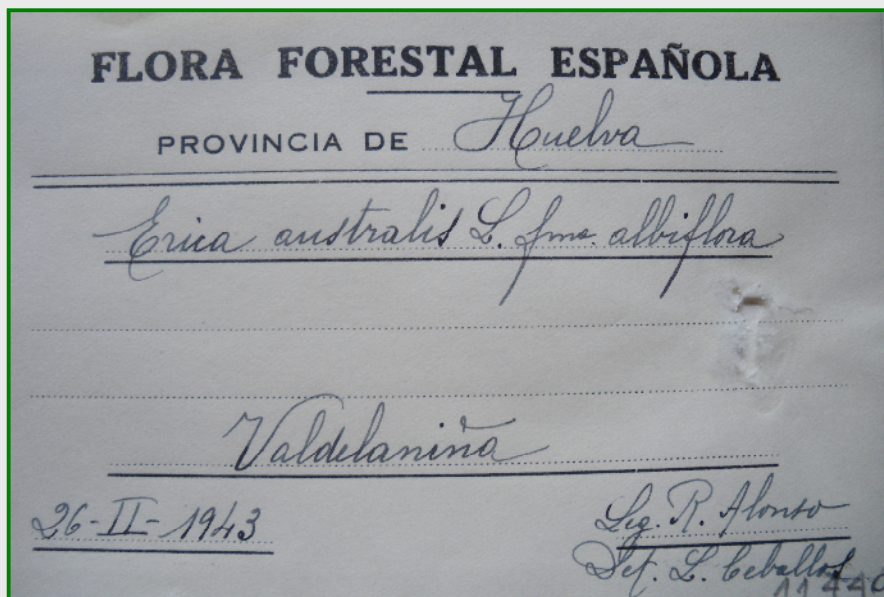 FLORA FORESTAL ESPAÑOLA
PROVINCIA DE Huelva
Erica australis L. fma. albiflora
Valdelaniña
26-II-1943
Leg. R. Alonso
Det. L. Ceballos